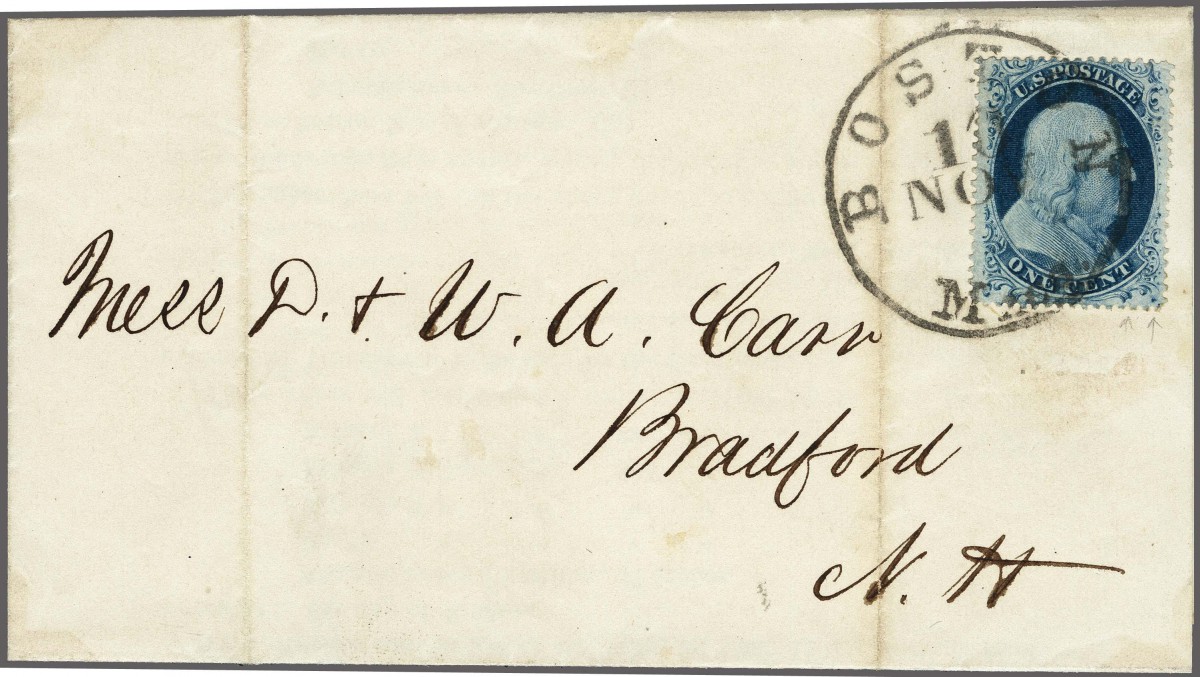 BOSTON
NOV
MASS
U.S. POSTAGE
ONE CENT
Mess D. & W. A. Carr
Bradford
N. H